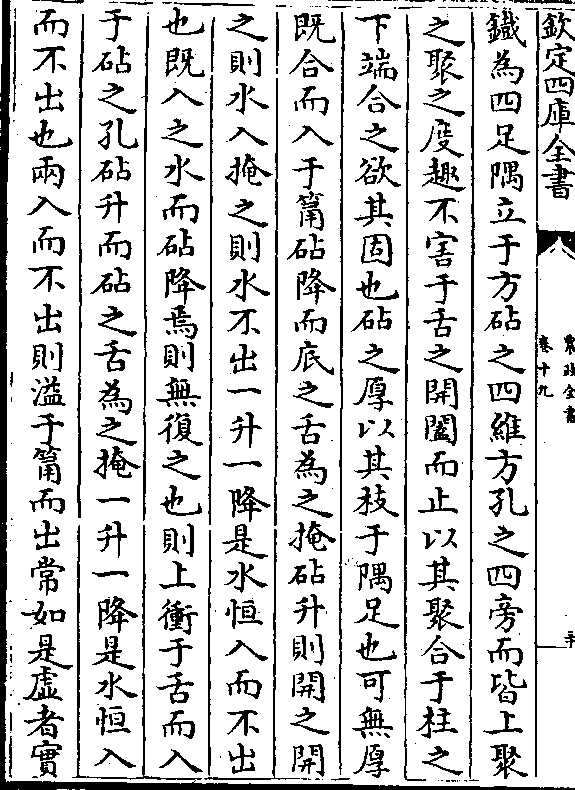 欽定四庫全書
農政全書
卷十九
鐡為四足隅立于方砧之四維方孔之四旁而皆上聚
之聚之度趣不害于舌之開闔而止以其聚合于柱之
下端合之欲其固也砧之厚以其枝于隅足也可無厚
既合而入于筩砧降而底之舌為之掩砧升則開之開
之則水入掩之則水不出一升一降是水恒入而不出
也既入之水而砧降焉則無復之也則上衝于舌而入
于砧之孔砧升而砧之舌為之掩一升一降是水恒入
而不出也兩入而不出則溢于筩而出常如是虚者實